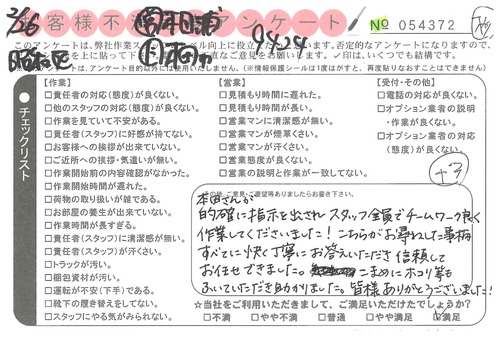 2/6
お客様不満アンケート
9425
№ 054372
昭和区
このアンケートは、弊社作業
向上に役立
います。否定的なアンケートになりますので、
をお願いします。✓印は、いくつでも結構です。
アンケート目的以外には使用いたしません。(※情報保護シールは1度はがすと、再度貼りなおすことはできません)
チェックリスト
【作業】
□責任者の対応(態度)が良くない。
□他のスタッフの対応(態度)が良くない。
□作業を見ていて不安がある。
□責任者(スタッフ)に好感が持てない。
□お客様への挨拶が出来ていない。
□ご近所への挨拶・気遣いが無い。
□作業開始前の内容確認がなかった。
□作業開始時間が遅れた。
□荷物の取り扱いが雑である。
□お部屋の養生が出来ていない。
□作業時間が長すぎる。
□責任者(スタッフ)に清潔感が無い。
□責任者(スタッフ)が汗くさい。
□トラックが汚い。
□梱包資材が汚い。
□運転が不安(下手)である。
□靴下の履き替えをしてない。
□スタッフにやる気がみられない。
【営業】
□見積もり時間に遅れた。
□見積もり時間が長い。
□営業マンに清潔感が無い。
□営業マンが煙草くさい。
□営業マンが汗くさい。
□営業態度が良くない。
□営業の説明と作業が一致してない。
【受付・その他】
□電話の対応が良くない。
□オプション業者の説明
・作業が良くない。
□オプション業者の対応
(態度)が良くない。
の他、ご意見・ご要望等ありましたらお書き下さい。
本田さんが
的確に指示を出され スタッフ全員でチームワーク良く
作業してくださいました! こちらがお尋ねした事柄
すべてに快く丁寧にお答えいただき 信頼して
お任せできました。こまめにホコリ等も
ふいていただき助かりました。皆様ありがとうございました!
☆当社をご利用いただきまして、ご満足いただけたでしょうか?
□不満 □やや不満 □普通 □やや満足 ☑満足